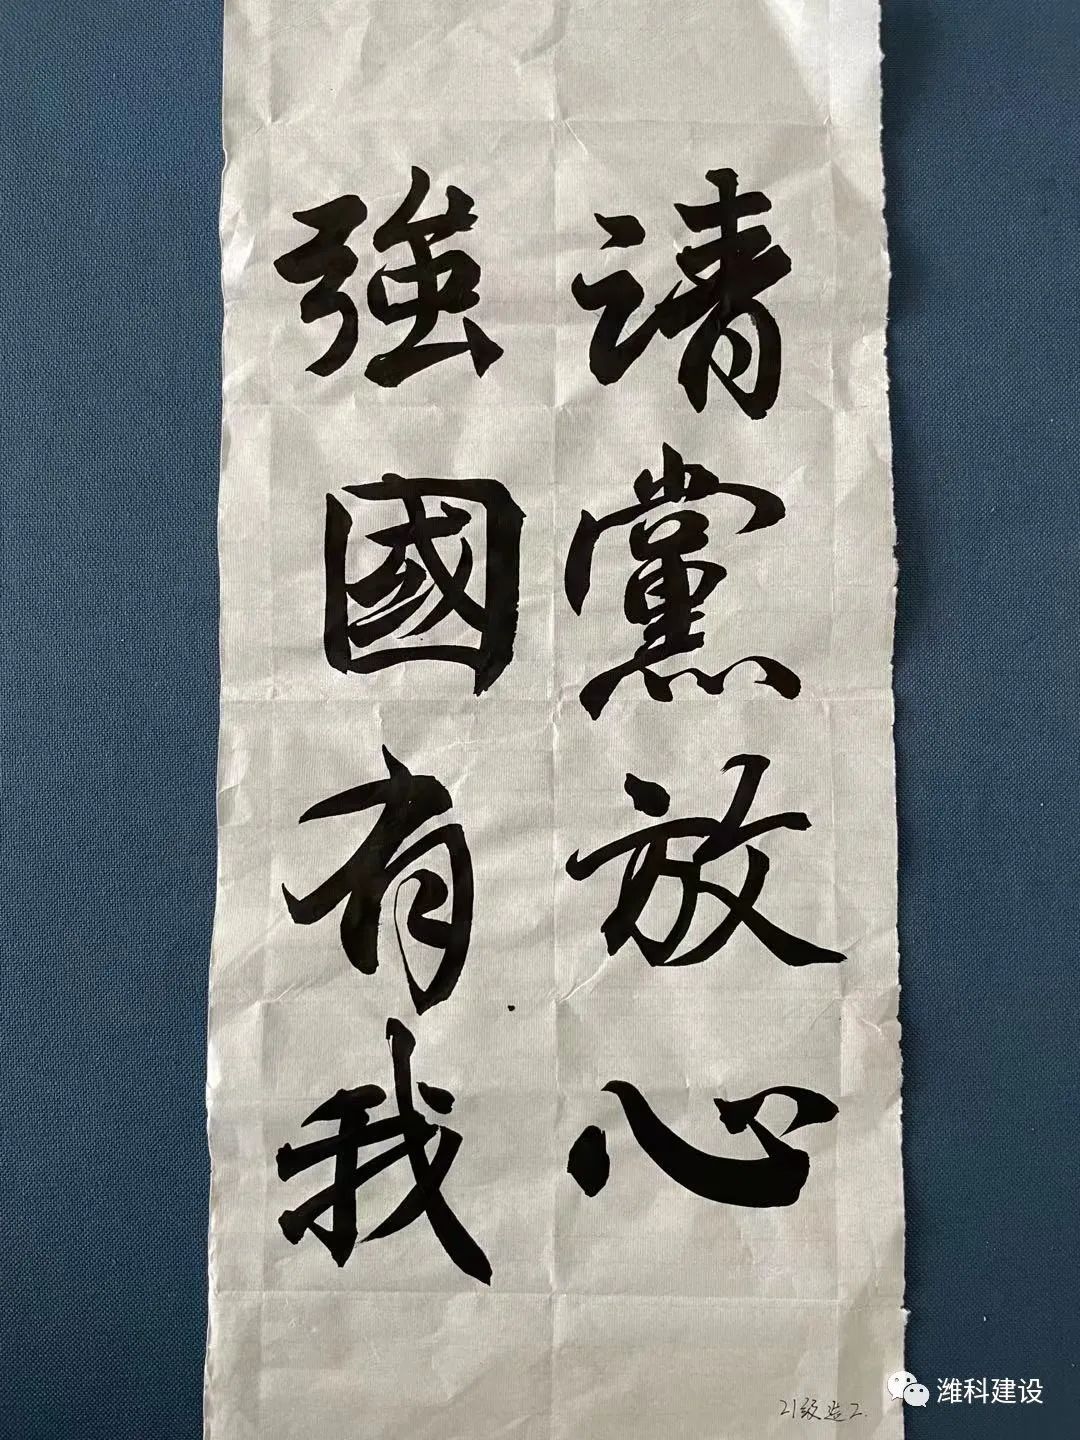 请黨放心
強國有我
21级造2.
潍科建设